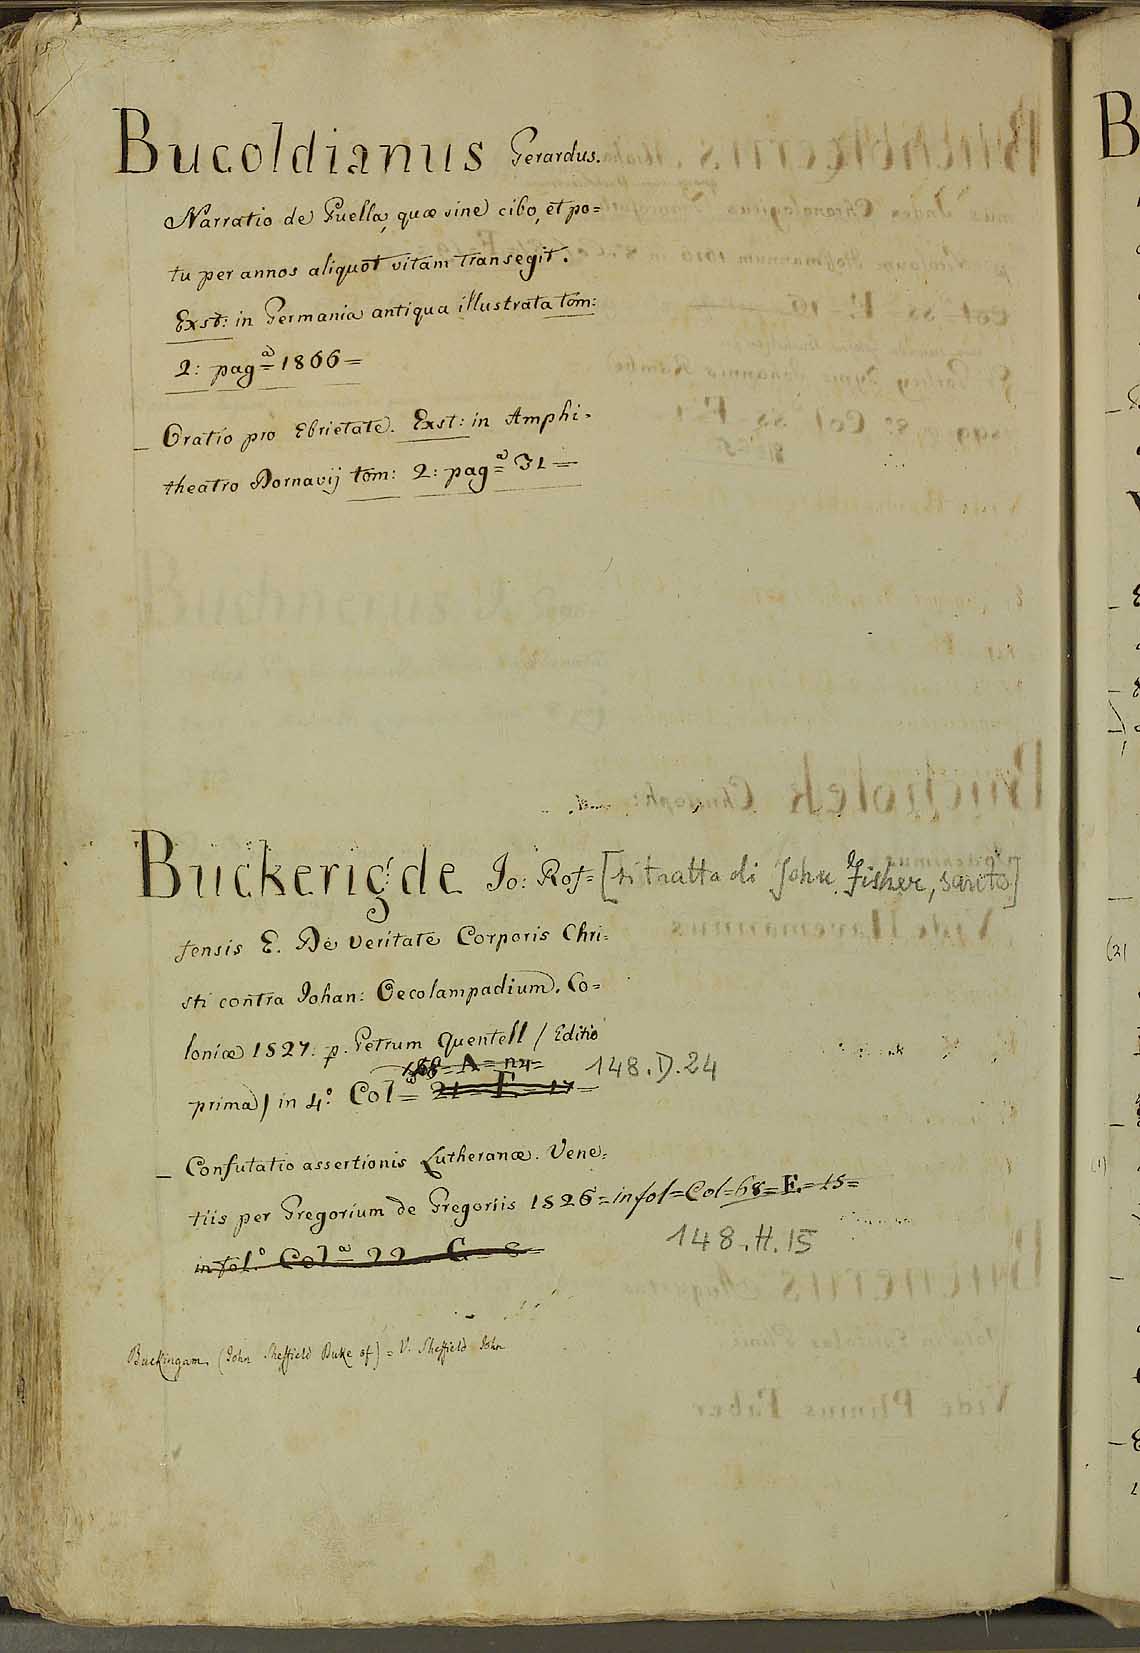 Bucoldianus Gerardus.
Narratio de Puella, quæ sine cibo, et po=
tu per annos aliquot vitam transegit.
Exst: in Germania antiqua illustrata tom:
2: pag=ᵃ 1866=
_ Oratio pro Ebrietate. Exst: in Amphi-
theatro Dornavij tom: 2: pag=ᵃ 31=
Buckerig:de Jo: Rof= [si tratta di John Fisher, santo]
fensis E. De veritate Corporis Chri=
sti contra Johan: Oecolampadium. Co=
loniæ 1527. p. Petrum Quentell / Editio
prima) in 4º Col=ᵃ 21=F=17= 148.D.24
_ Confutatio assertionis Lutheranæ. Vene=
tiis per Gregorium de Gregoriis 1526=in fol=Col=68=E=15=
in fol.º Col=ᵃ 22 G=8= 148.H.15
Buckingam (John Sheffield Duke of) = V. Sheffield John
B
(2)
(1)